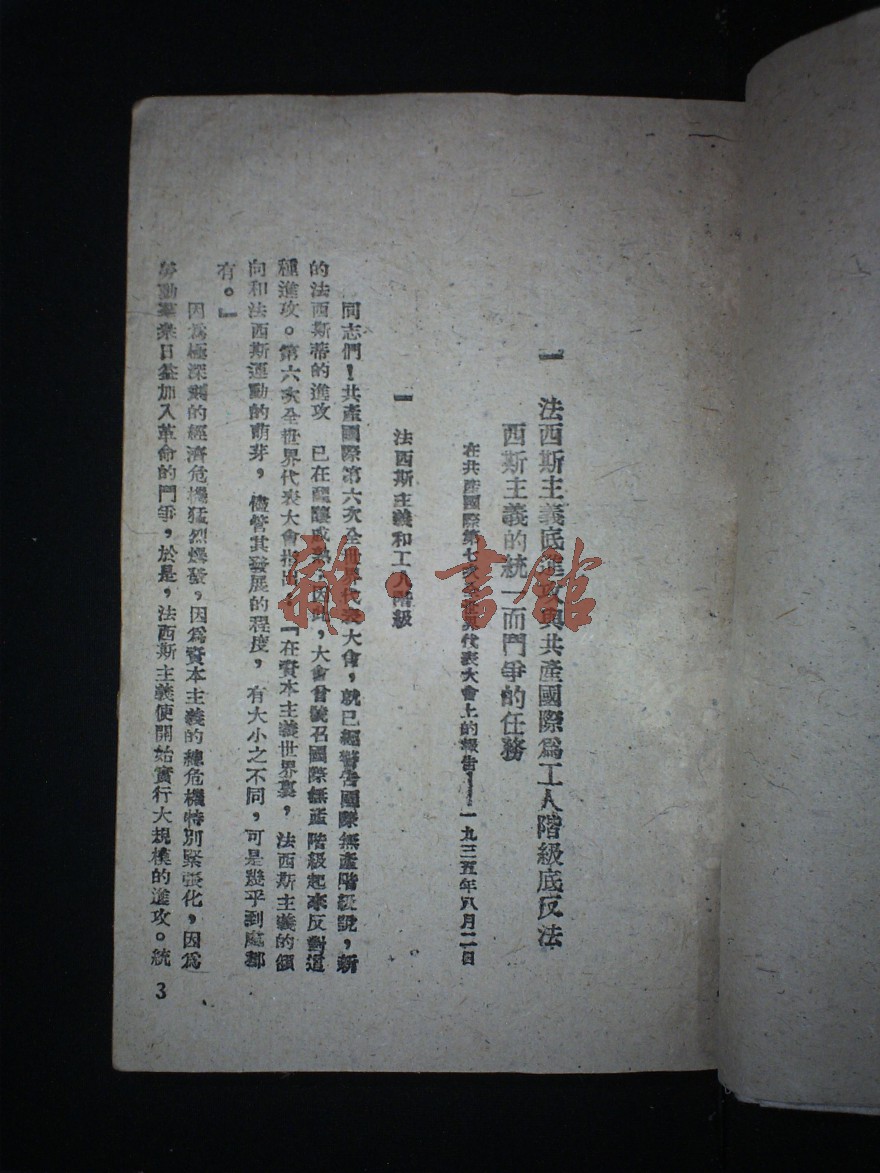 一　法西斯主義底進攻與共產國際爲工人階級底反法
西斯主義的統一而鬥爭的任務
在共產國際第七次全世界代表大會上的報告——一九三五年八月二日
一　法西斯主義和工人階級
同志們！共產國際第六次全世界代表大會，就已經警告國際無產階級說，新
的法西斯蒂的進攻　已在醞釀成熟，因此，大會曾號召國際無產階級起來反對這
種進攻。第六次全世界代表大會指出：『在資本主義世界裏，法西斯主義的傾
向和法西斯運動的萌芽，儘管其發展的程度，有大小之不同，可是幾乎到處都
有。』
因爲極深刻的經濟危機猛烈爆發，因爲資本主義的總危機特別緊張化，因爲
勞動羣衆日益加入革命的鬥爭，於是，法西斯主義便開始實行大規模的進攻。統
3
雜·書館